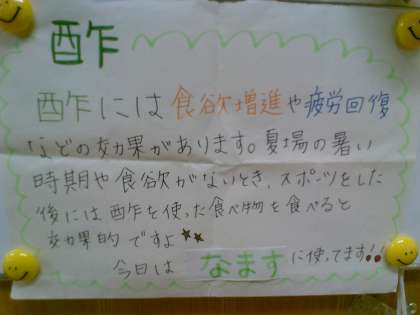 酢
酢には食欲増進や疲労回復
などの効果があります。夏場の暑い
時期や食欲がないとき、スポーツをした
後には酢を使った食べ物を食べると
効果的ですよ★★
今日はなますに使ってます!!